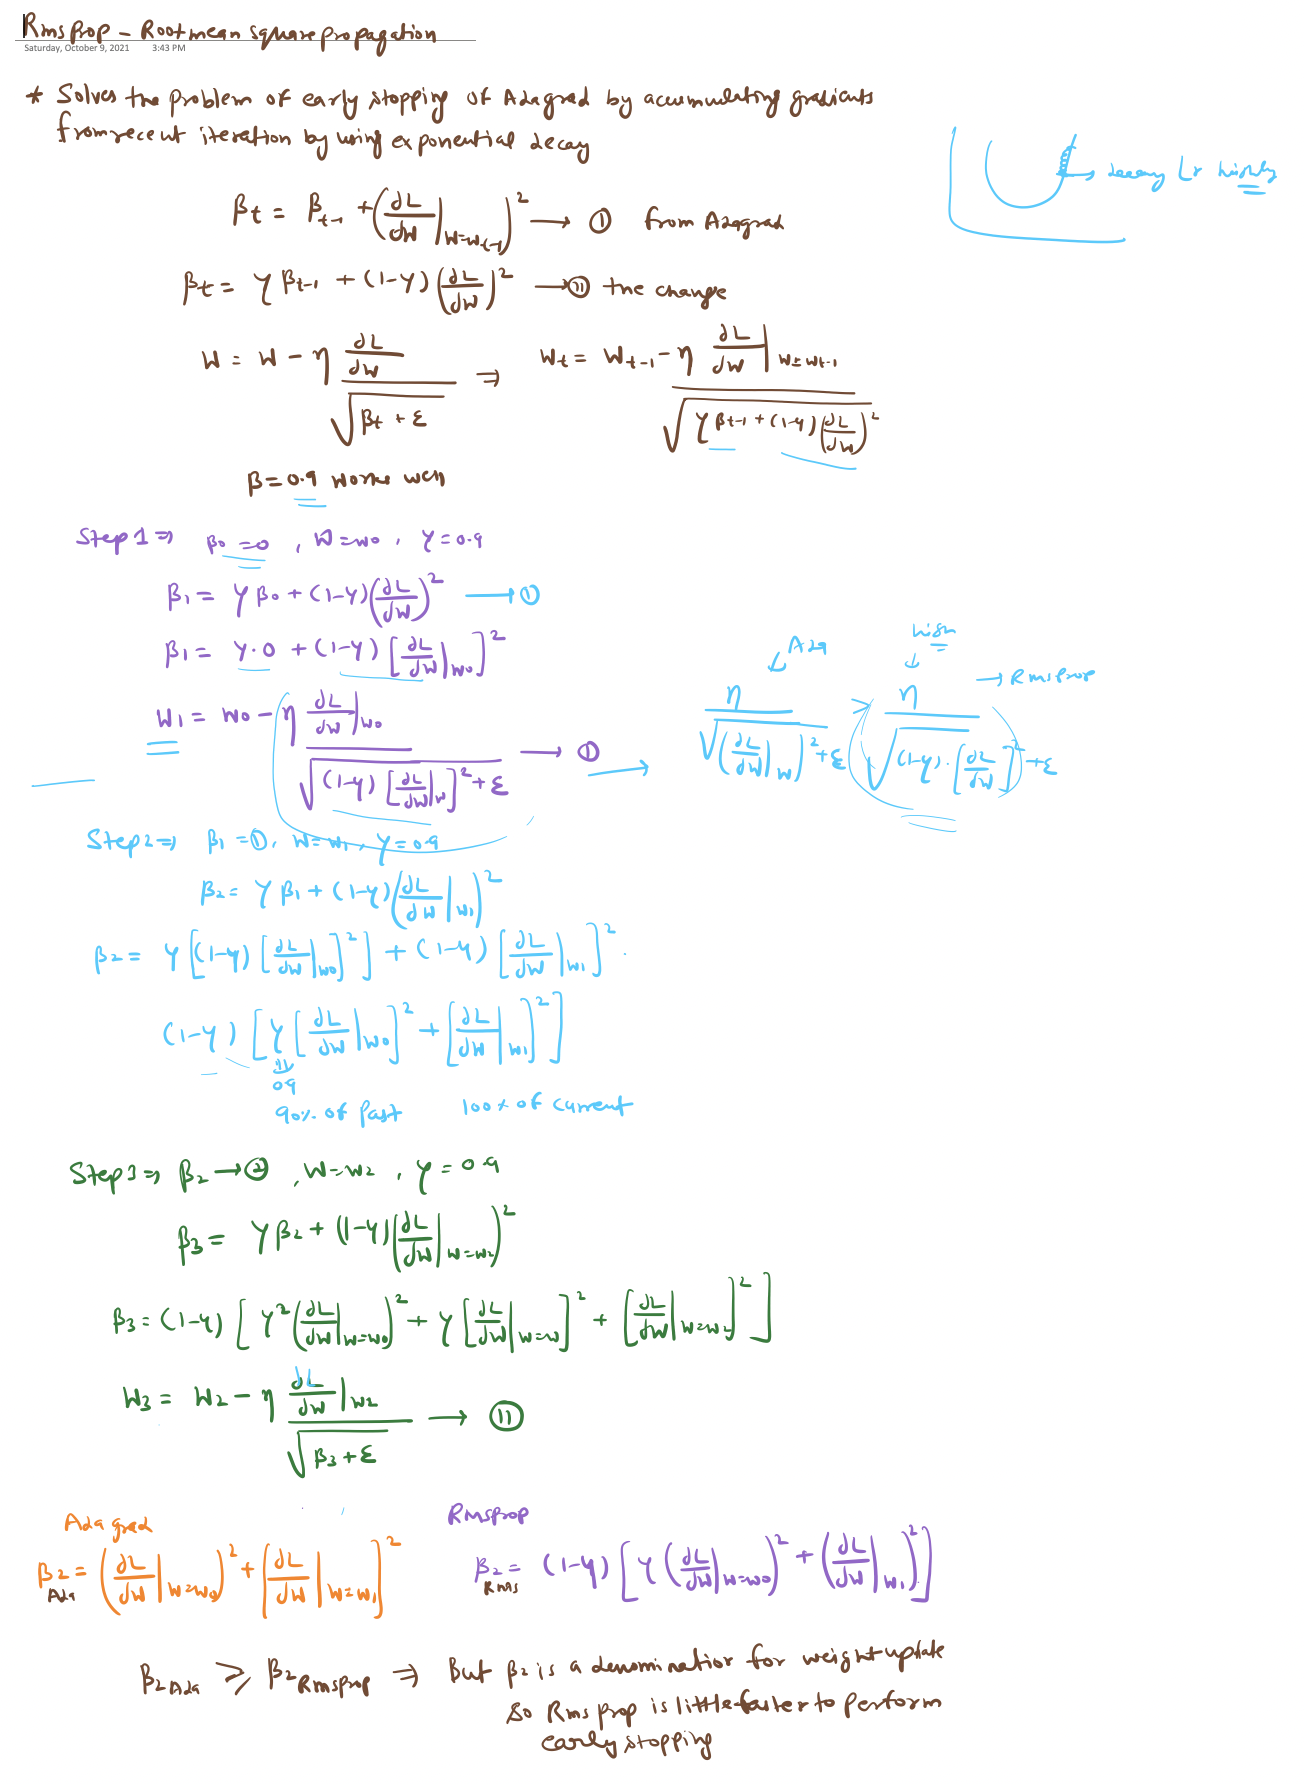 RmsProp - Root mean square propagation
Saturday, October 9, 2021 3:43 PM
* Solves the problem of early stopping of Adagrad by accumulating gradients
from recent iteration by using exponential decay
→ decay Lr highly
βt = βt-1 + (∂L/∂W |W=Wt-1)² → ① from Adagrad
βt = γ βt-1 + (1-γ) (∂L/∂W)² → ⑪ the change
W = W - η ∂L/∂W / √(βt + ε) ⇒ Wt = Wt-1 - η ∂L/∂W |W=Wt-1 / √(γ βt-1 + (1-γ) (∂L/∂W)²)
β = 0.9 works well
Step 1 ⇒ β0 = 0 , W = W0 , γ = 0.9
β1 = γ β0 + (1-γ) (∂L/∂W)² → ①
β1 = γ · 0 + (1-γ) [∂L/∂W |W0]²
W1 = W0 - η ∂L/∂W |W0 / √((1-γ) [∂L/∂W |W]² + ε) → ①
Ada high
→ RmsProp
η / √((∂L/∂W |W)² + ε) > η / √((1-γ) · [∂L/∂W]² + ε)
Step 2 ⇒ β1 = ①, W = W1, γ = 0.9
β2 = γ β1 + (1-γ) (∂L/∂W |W1)²
β2 = γ [(1-γ) [∂L/∂W |W0]²] + (1-γ) [∂L/∂W |W1]²
(1-γ) [γ [∂L/∂W |W0]² + [∂L/∂W |W1]²]
0.9
90% of Past 100% of current
Step 3 ⇒ β2 → ② , W = W2 , γ = 0.9
β3 = γ β2 + (1-γ) (∂L/∂W |W=W2)²
β3 = (1-γ) [γ² (∂L/∂W |W=W0)² + γ [∂L/∂W |W=W]² + [∂L/∂W |W=W2]²]
W3 = W2 - η ∂L/∂W |W2 / √(β3 + ε) → ⑪
Adagrad RmsProp
β2 Ada = (∂L/∂W |W=W0)² + [∂L/∂W |W=W1]²
β2 Rms = (1-γ) [γ (∂L/∂W |W=W0)² + (∂L/∂W |W1)²]
β2 Ada ⩾ β2 RmsProp ⇒ But β2 is a denominatior for weight update
so Rms prop is little faster to perform
early stopping